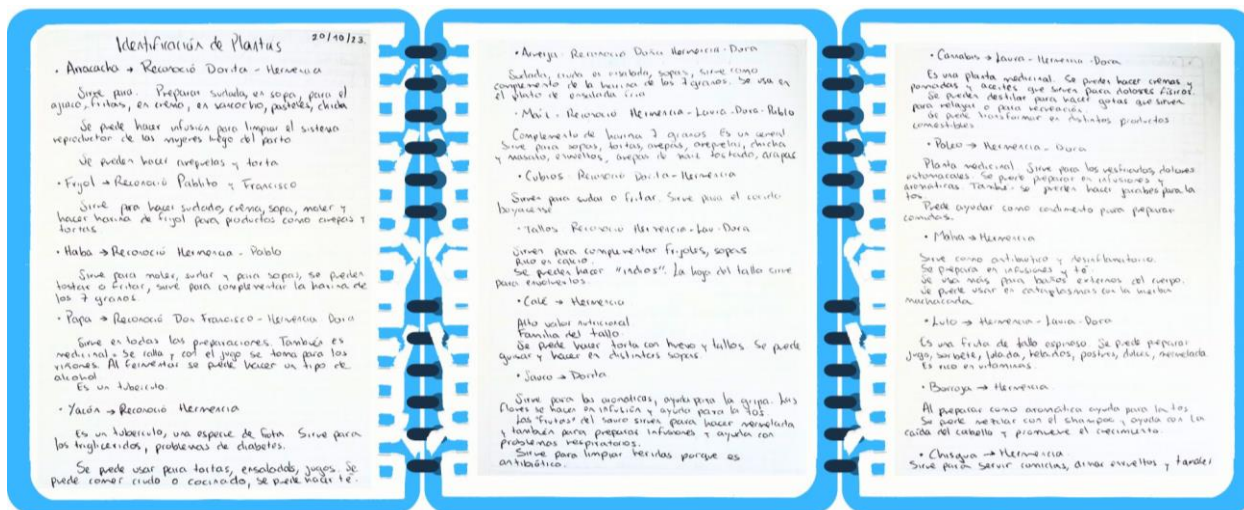 Identificación de Plantas 20/10/23
• Aracacha → Reconoció Dorita - Hermencia
Sirve para: Preparar sudada, en sopa, para el
ajiaco, fritas, en crema, en sancocho, pasteles, chicha
Se puede hacer infusión para limpiar el sistema
reproductor de las mujeres luego del parto
Se pueden hacer arepuelas y torta
• Frijol → Reconoció Pablito y Francisco
Sirve para hacer sudado, crema, sopa, moler y
hacer harina de frijol para productos como arepas y
tortas.
• Haba → Reconoció Hermencia - Pablo
Sirve para moler, sudar y para sopas, se pueden
tostar o fritar, sirve para complementar la harina de
los 7 granos.
• Papa → Reconoció Don Francisco - Hermencia Dora
Sirve en todas las preparaciones. También es
medicinal. Se ralla y con el jugo se toma para los
riñones. Al fermentar se puede hacer un tipo de
alcohol
Es un tubérculo.
• Yacón → Reconoció Hermencia
Es un tubérculo, una especie de Sirve para
los triglicéridos, problemas de diabetes.
Se puede usar para tortas, ensaladas, jugos. Se
puede comer crudo o cocinado, se puede hacer té.
• Arveja - Reconoció Doña Hermencia - Dora
Sudada, cruda en ensalada, sopas, sirve como
complemento de la harina de los 7 granos. Se usa en
el plato de ensalada fría
• Maíz - Reconoció Hermencia - Laura - Dora - Pablo
Complemento de harina 7 granos. Es un cereal
Sirve para sopas, tortas, arepas, arepuelas, chicha
y masato, envueltos, arepas de maíz tostado, arapas
• Cubios - Reconoció Dorita - Hermencia
Sirven para sudar o fritar. Sirve para el cocido
boyacense
• Tallos Reconoció Hermencia - Lau - Dora
Sirven para complementar frijoles, sopas
Rico en calcio.
Se pueden hacer "indios". La hoja del tallo sirve
para envolverlos.
• Calé → Hermencia
Alto valor nutricional
Familia del tallo
Se puede hacer torta con huevo y tallos. Se puede
guisar y hacer en distintas sopas
• Sauco → Dorita
Sirve para las aromáticas, ayuda para la gripa. Las
flores se hacen en infusión y ayuda para la tos.
Las "frutas" del sauco sirven para hacer mermelada
y también para preparar infusiones y ayuda con
problemas respiratorios.
Sirve para limpiar heridas porque es
antibiótico.
• Cannabis → Laura - Hermencia - Dora
Es una planta medicinal. Se pueden hacer cremas y
pomadas y aceites que sirven para dolores físicos.
Se pueden destilar para hacer gotas que sirven
para relajar o para recreación
Se puede transformar en distintos productos
comestibles
• Poleo → Hermencia - Dora
Planta medicinal. Sirve para los dolores
estomacales. Se puede preparar en infusiones y
aromáticas. También se pueden hacer jarabes para la
tos.
Puede ayudar como condimento para preparar
comidas.
• Malva → Hermencia
Sirve como antibiótico y desinflamatorio.
Se prepara en infusiones y té.
Se usa más para baños externos del cuerpo.
Se puede usar en cataplasmas con la hierba
machacada.
• Lulo → Hermencia - Laura - Dora
Es una fruta de tallo espinoso. Se puede preparar
jugo, sorbete, helados, postres, dulces, mermelada
Es rico en vitaminas.
• Borraja → Hermencia
Al preparar como aromática ayuda para la tos
Se puede mezclar con el shampoo y ayuda con la
caída del cabello y promueve el crecimiento.
• Chisgua → Hermencia
Sirve para servir comidas, armar envueltos y tamales